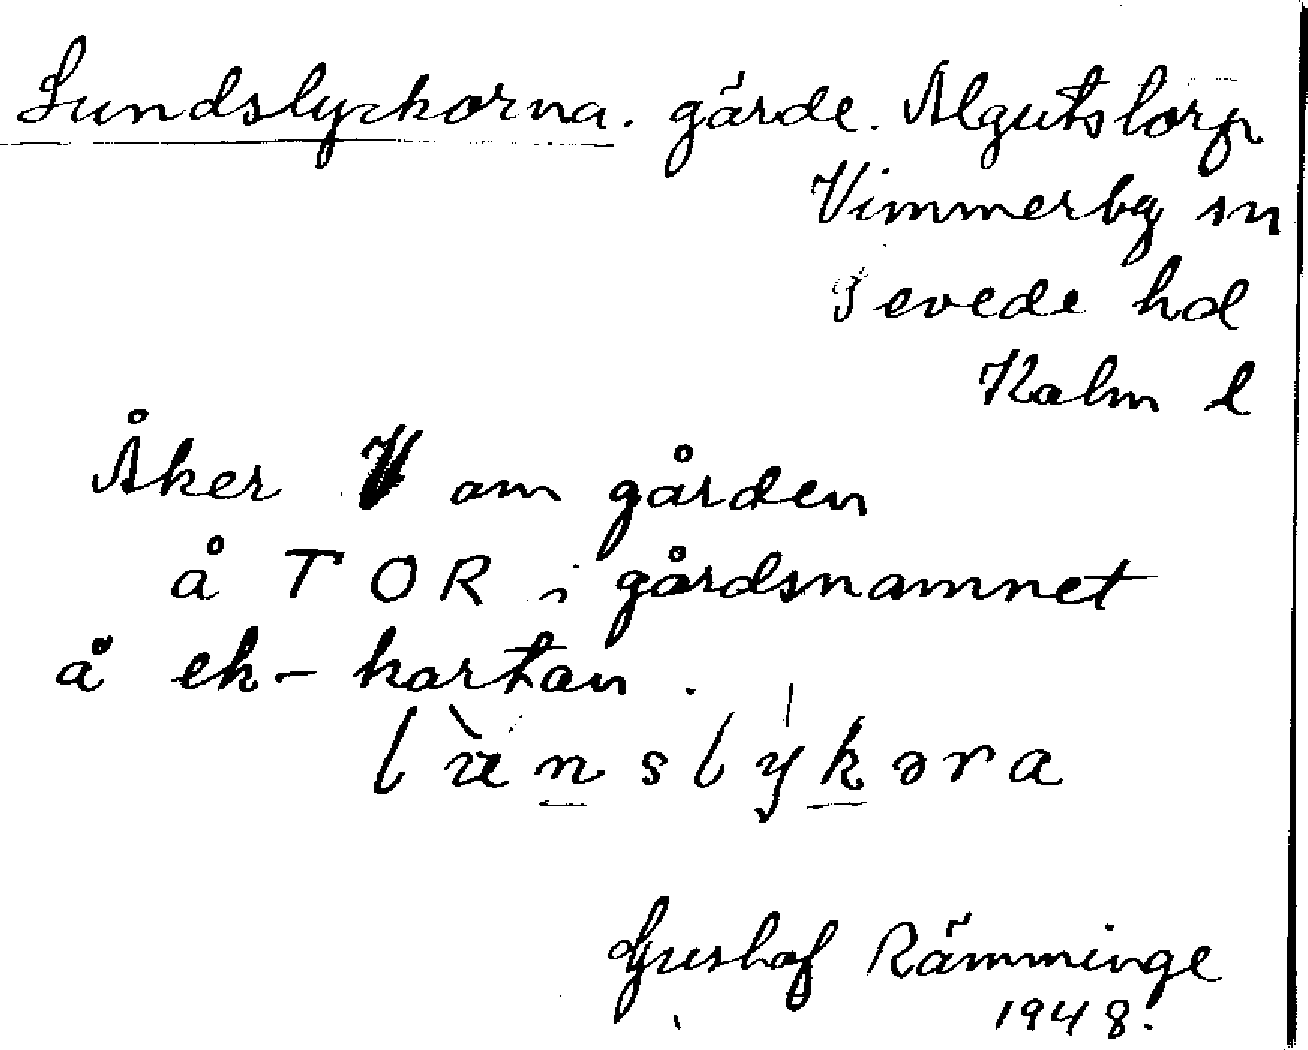 Lundslyckorna. gärde. Algutstorp
Vimmerby sn
Sevede hd
Kalm l
Åker V om gården
å TOR i gårdsnamnet
å ek-kartan.
Gustaf Rämminge
1948.